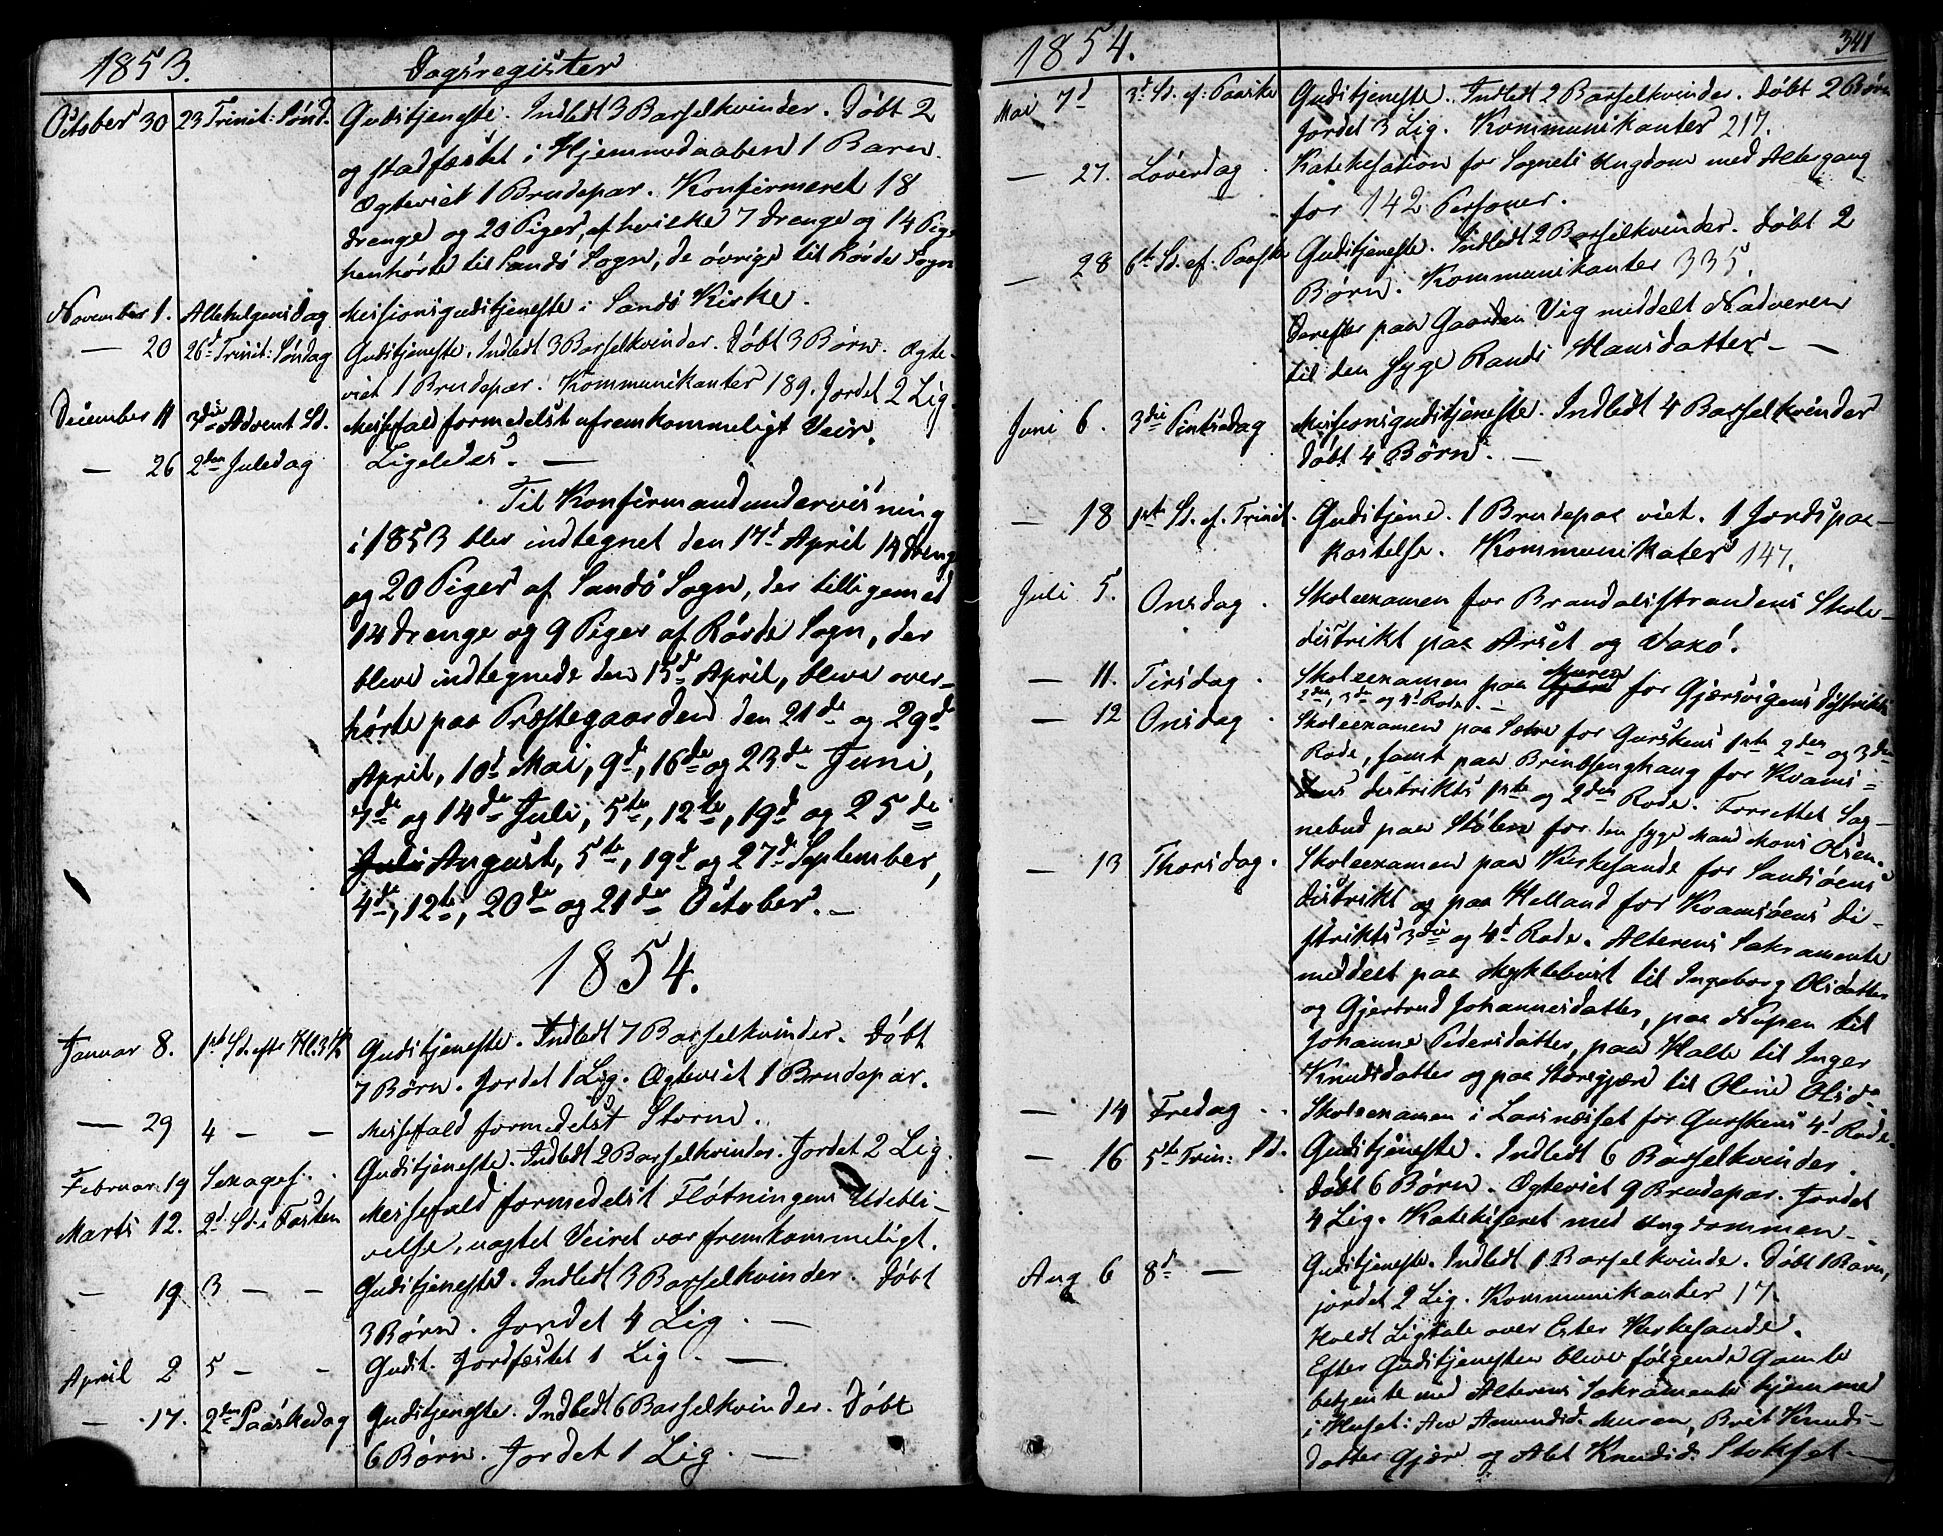 1853. Dagsregister
October 30 23 Trinit: Sønd. Gudstjeneste. Indledt 3 Barselkvinder. Døbt 2
og stadfæstet i Hjemmedaaben 1 Barn.
Ægteviet 1 Brudepar. Konfirmeret 18
Drenge og 20 Piger, af hvilke 7 Drenge og 14 Piger
henhørte til Sandø Sogn, de øvrige til Røvde Sogn
November 1. Allehelgensdag Messionsgudstjeneste i Sandø Kirke.
— 20 26d Trinit: Søndag Gudstjeneste. Indledt 3 Barselkvinder. Døbt 3 Børn. Ægte-
viet 1 Brudepar. Kommunikanter 189. Jordet 2 Lig.
December 11 3die Advent Sd. Messefald formedelst ufremkommeligt Veir.
— 26 2den Juledag Ligeledes. —
Til Konfirmandundervisning
i 1853 blev indtegnet den 17d April 14 Drenge
og 20 Piger af Sandø Sogn, der tilligemed
14 Drenge og 9 Piger af Røvde Sogn, der
bleve indtegnede den 15de April, bleve over-
hørte paa Præstegaarden den 21de og 29de
April, 10d Mai, 9d, 16de og 23de Juni,
7de og 14de Juli, 5te, 12te, 19d og 25de
Juli August, 5te, 19d og 27d September,
4de, 12te, 20de og 21de October. —
1854.
Januar 8. 1ste Sd. efter Hl. 3 K. Gudstjeneste. Indledt 7 Barselkvinder. Døbt
7 Børn. Jordet 1 Lig. Ægteviet 1 Brudepar.
— 29 4 — — Messefald formedelst Storm.
Februar 19 Sexages. Gudstjeneste. Indledt 2 Barselkvinder. Jordet 2 Lig.
Marts 12. 2d Sd. i Fasten Messefald formedelst Fløtningens Udebli-
velse, uagtet Veiret var fremkommeligt.
— 19 3 — — Gudstjeneste. Indledt 3 Barselkvinder. Døbt
3 Børn. Jordet 4 Lig. —
April 2 5 — — Gudst. Jordfæstet 1 Lig. —
— 17. 2den Paaskedag Gudstjeneste. Indledt 6 Barselkvinder. Døbt
6 Børn. Jordet 1 Lig. —
1854. 341
Mai 7d 3d Sd. ef. Paaske Gudstjeneste. Indledt 2 Barselkvinder. Døbt 2 Børn
Jordet 3 Lig. Kommunikanter 217.
— 27. Løverdag. Katekesation for Sognets Ungdom med Altergang
for 142 Personer.
— 28 6te Sd. ef. Paaske Gudstjeneste. Indledt 2 Barselkvinder. Døbt 2
Børn. Kommunikanter 335.
Derefter paa Gaarden Vig meddelt Nadveren
til den syge Randi Hansdatter — —
Juni 6. 3die Pintsedag Messionsgudstjeneste. Indledt 4 Barselkvinder
Døbt 4 Børn. —
— 18 1ste Sd. ef. Trinit. Gudstjene. 1 Brudepar viet. 1 Jordspaa-
kastelse. Kommunikater 147.
Juli 5. Onsdag. Skoleexamen for Brandalsstrandens Skole-
distrikt paa Arset og Vaxø.
— 11. Tirsdag. Skoleexamen paa Gjære Muren for Gjærsvigens Distrikts
2den, 3die og 4d Rode. —
— 12 Onsdag. Skoleexamen paa Sætre for Gurskens 1ste 2den og 3die
Rode, samt paa Bringsenghaug for Kvams-
øens distrikts 1ste og 2den Rode. Forrettet Sog-
nebud paa Stølen for den syge Mand Mons Olsen.
— 13 Thorsdag. Skoleexamen paa Kirkesande for Sandsøens
Distrikt og paa Helland for Kvamsøens Di-
strikts 3die og 4d Rode. Alterens Sakramente
meddelt paa Myklebust til Ingeborg Olsdatter
og Gjertrud Johannesdatter, paa Nupen til
Johanne Pedersdatter, paa Halte til Inger
Knudsdatter og paa Storegjære til Oline Olsd.
— 14 Fredag. Skoleexamen i Larsnæsset for Gurskens 4d Rode.
— 16 5te Trin: Sd. Gudstjeneste. Indledt 6 Barselkvinder.
Døbt 6 Børn. Ægteviet 9 Brudepar. Jordet
4 Lig. Katekiseret med Ungdommen. —
Aug 6 8d — Gudstjeneste. Indledt 1 Barselkvinde. Døbt 1 Barn,
jordet 2 Lig. Kommunikanter 17.
Holdt Ligtale over Ester Kirkesande.
Efter Gudstjenesten bleve følgende Gamle
betjente med Alterens Sakramente hjemme
i Huset: Ane Amundsd. Muren, Brit Knuds-
datter Gjære og Abt Knudsd. Stokset —